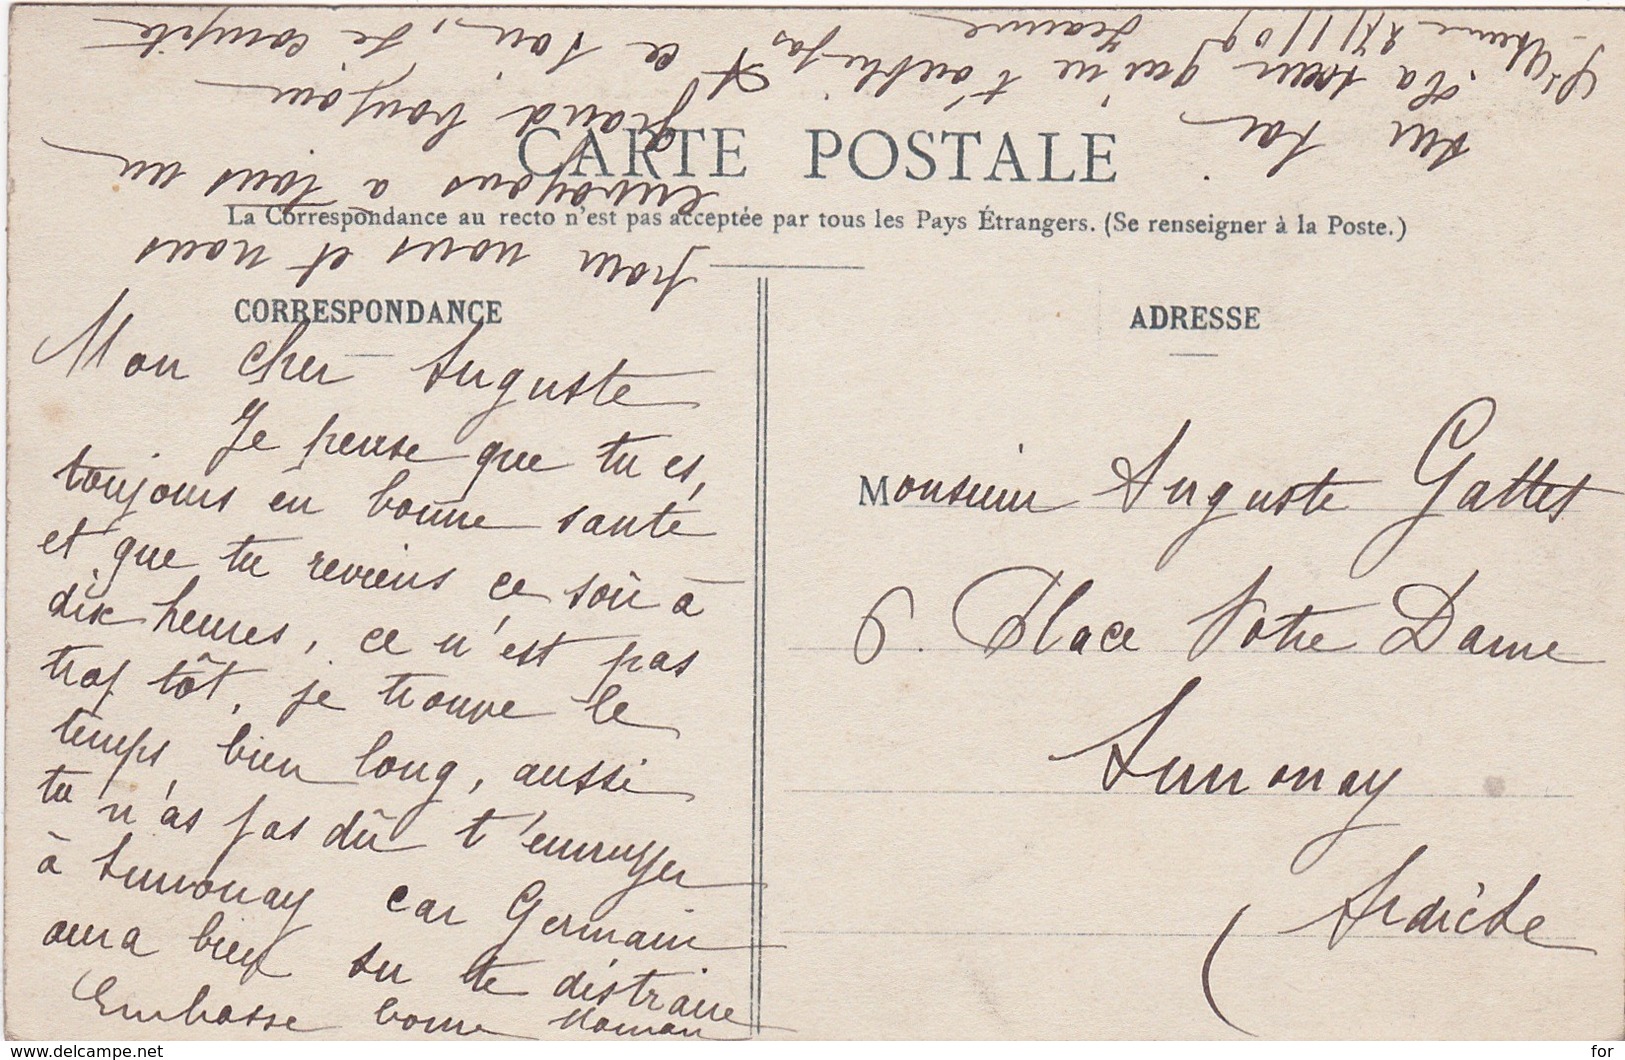 CARTE POSTALE
La Correspondance au recto n'est pas acceptée par tous les Pays Étrangers. (Se renseigner à la Poste.)
CORRESPONDANCE
Mon cher Auguste
Je pense que tu es,
toujours en bonne santé
et que tu reviens ce soir à
dix heures, ce n'est pas
trop tôt, je trouve le
temps bien long, aussi
tu n'as pas dû t'ennuyer
à Annonay car Germain
aura bien su te distraire
Embrasse bonne Maman
pour nous et nous
envoyons a tous un
grand bonjour
A ce soir, je compte
sur toi.
Ta sœur qui ne t'oublie pas
Jeanne
27/1/09
ADRESSE
Monsieur Auguste Gattet
6. Place Notre Dame
Annonay
(Ardèche
delcampe.net
for